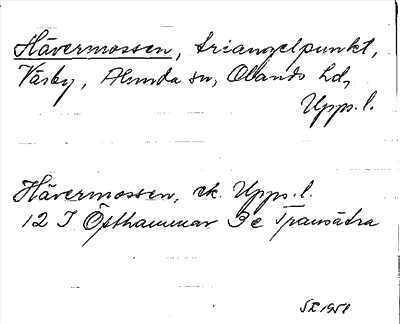 Hävermossen, triangelpunkt,
Väsby, Alunda sn, Olands hd,
Upps. l.
Hävermossen, ek. Upps. l.
12 I Östhammar 3e Tranätra
1951